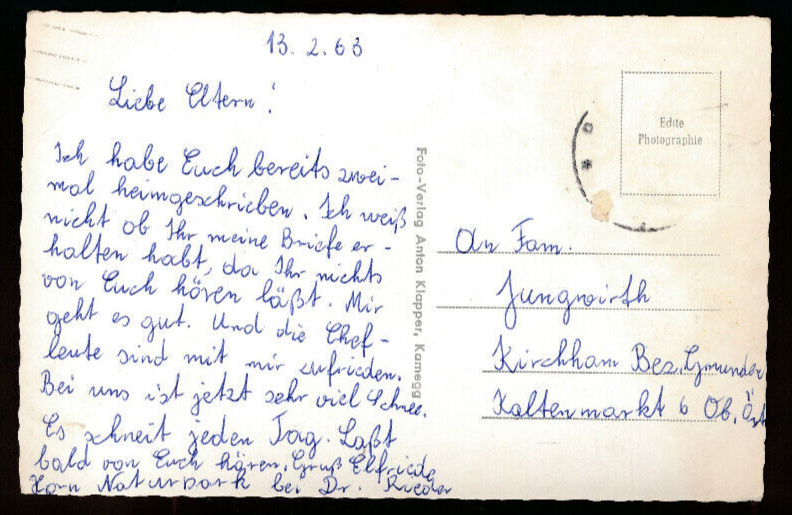 13. 2. 63
Liebe Eltern!
Ich habe Euch bereits zwei-
mal heimgeschrieben. Ich weiß
nicht ob Ihr meine Briefe er-
halten habt, da Ihr nichts
von Euch hören läßt. Mir
geht es gut. Und die Chef-
leute sind mit mir zufrieden.
Bei uns ist jetzt sehr viel Schnee.
Es schneit jeden Tag. Laßt
bald von Euch hören. Gruß Elfriede
Horn Naturpark bei Dr. Rieder
Foto-Verlag Anton Klapper, Kamegg
Echte
Photographie
An Fam.
Jungwirth
Kirchham Bez. Gmunden
Kaltenmarkt 6 Ob. Öst